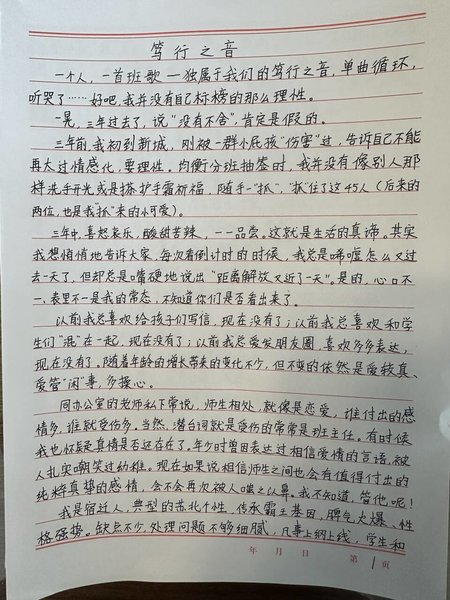 笃行之音
一个人，一首班歌—独属于我们的笃行之音，单曲循环，
听哭了……好吧，我并没有自己标榜的那么理性。
一晃，三年过去了，说“没有不舍”，肯定是假的。
三年前我初到新城，刚被一群小屁孩“伤害”过，告诉自己不能
再太过情感化，要理性。均衡分班抽签时，我并没有像别人那
样洗手开光或是搽护手霜祈福，随手一“抓”，“抓”住了这45人（后来的
两位，也是我“抓”来的小可爱）。
三年中，喜怒哀乐，酸甜苦辣，一一品尝。这就是生活的真谛。其实
我想悄悄地告诉大家，每次看倒计时的时候，我总是唏嘘怎么又过
去一天了，但却总是嘴硬地说出“距离解放又近了一天”。是的，心口不
一、表里不一是我的常态，不知道你们是否看出来了。
以前我总喜欢给孩子们写信，现在没有了；以前我总喜欢和学
生们“混”在一起，现在没有了；以前我总爱发朋友圈，喜欢多多表达，
现在没有了。随着年龄的增长带来的变化不少，但不变的依然是爱较真、
爱管“闲”事，多操心。
同办公室的老师私下常说，师生相处，就像是恋爱，谁付出的感
情多，谁就受伤多。当然，潜台词就是受伤的常常是班主任。有时候
我也怀疑真情是否还存在了。年少时曾因表达过相信爱情的言语，被
人扎实嘲笑过幼稚。现在如果说相信师生之间也会有值得付出的
纯粹真挚的感情，会不会再次被人嗤之以鼻。我不知道，管他呢！
我是宿迁人，典型的苏北个性，传承霸王基因，脾气火爆、性
格强势。缺点不少，处理问题不够细腻，凡事上纲上线，学生和
年 月 日 第 1 页